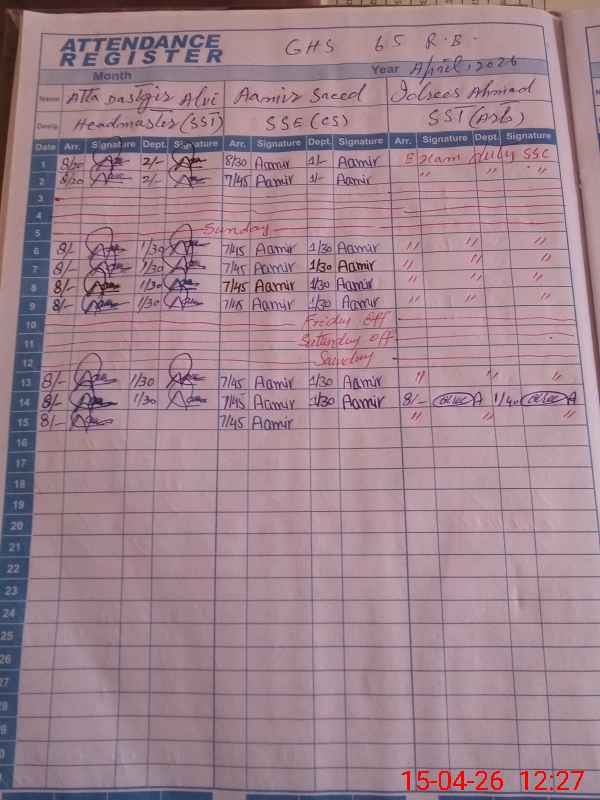 ATTENDANCE
REGISTER
GHS 65 R.B.
Month Year April, 2026
Name Atta Dastgir Alvi Aamir Saeed Idrees Ahmad
Desig. Headmaster (SST) SSE (CS) SST (Arb)
Date Arr. Signature Dept. Signature Arr. Signature Dept. Signature Arr. Signature Dept. Signature
1 8/30 2/- 8/30 Aamir 1/- Aamir Exam duty SSC
2 8/20 2/- 7/45 Aamir 1/- Aamir " " "
3
4
5 Sunday
6 8/- 1/30 7/45 Aamir 1/30 Aamir " " "
7 8/- 1/30 7/45 Aamir 1/30 Aamir " " "
8 8/- 1/30 7/45 Aamir 1/30 Aamir " " "
9 8/- 1/30 7/45 Aamir 1/30 Aamir " " "
10 Friday off
11 Saturday off
12 Sunday
13 8/- 1/30 7/45 Aamir 1/30 Aamir " " "
14 8/- 1/30 7/45 Aamir 1/30 Aamir 8/- 1/40
15 8/- 7/45 Aamir " " "
16
17
18
19
20
21
22
23
24
25
26
27
28
29
15-04-26 12:27